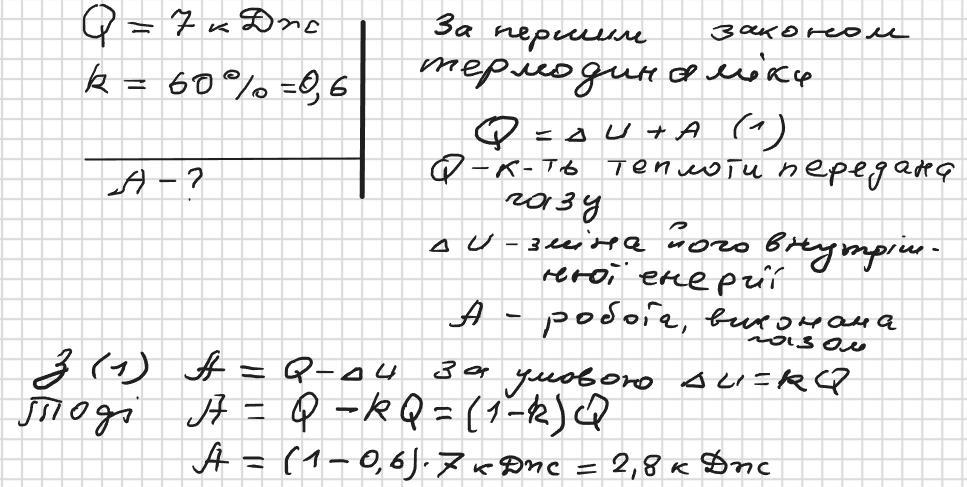 Q = 7 кДж
k = 60% = 0,6
A - ?
За першим законом
термодинаміки
Q = ΔU + A (1)
Q - к-ть теплоти передана
газу
ΔU - зміна його внутріш-
ньої енергії
A - робота, виконана
газом
З (1) A = Q - ΔU за умовою ΔU = kQ
тоді A = Q - kQ = (1-k)Q
A = (1-0,6)·7 кДж = 2,8 кДж